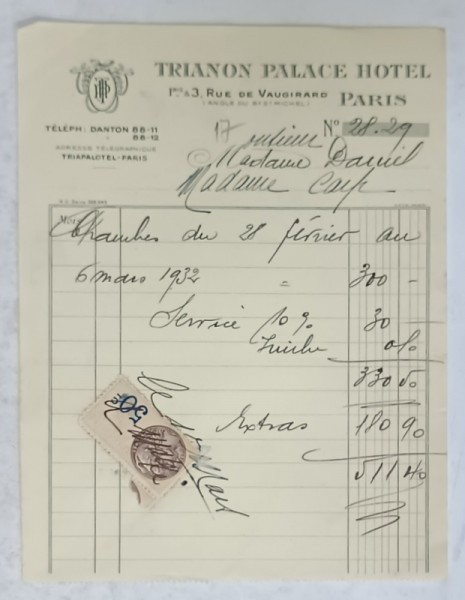 TRIANON PALACE HOTEL
1BIS & 3, RUE DE VAUGIRARD
(ANGLE DU BD ST MICHEL)
PARIS
TÉLÉPH: DANTON 88-11
88-12
ADRESSE TÉLÉGRAPHIQUE
TRIAPALOTEL-PARIS
No 28.29
Monsieur
Madame Daniel
Madame
Chambes du 28 février au
6 mars 1932 = 300 -
Service 10% 30 -
Timbre 0 50
330 50
Extras 180 90
511 40